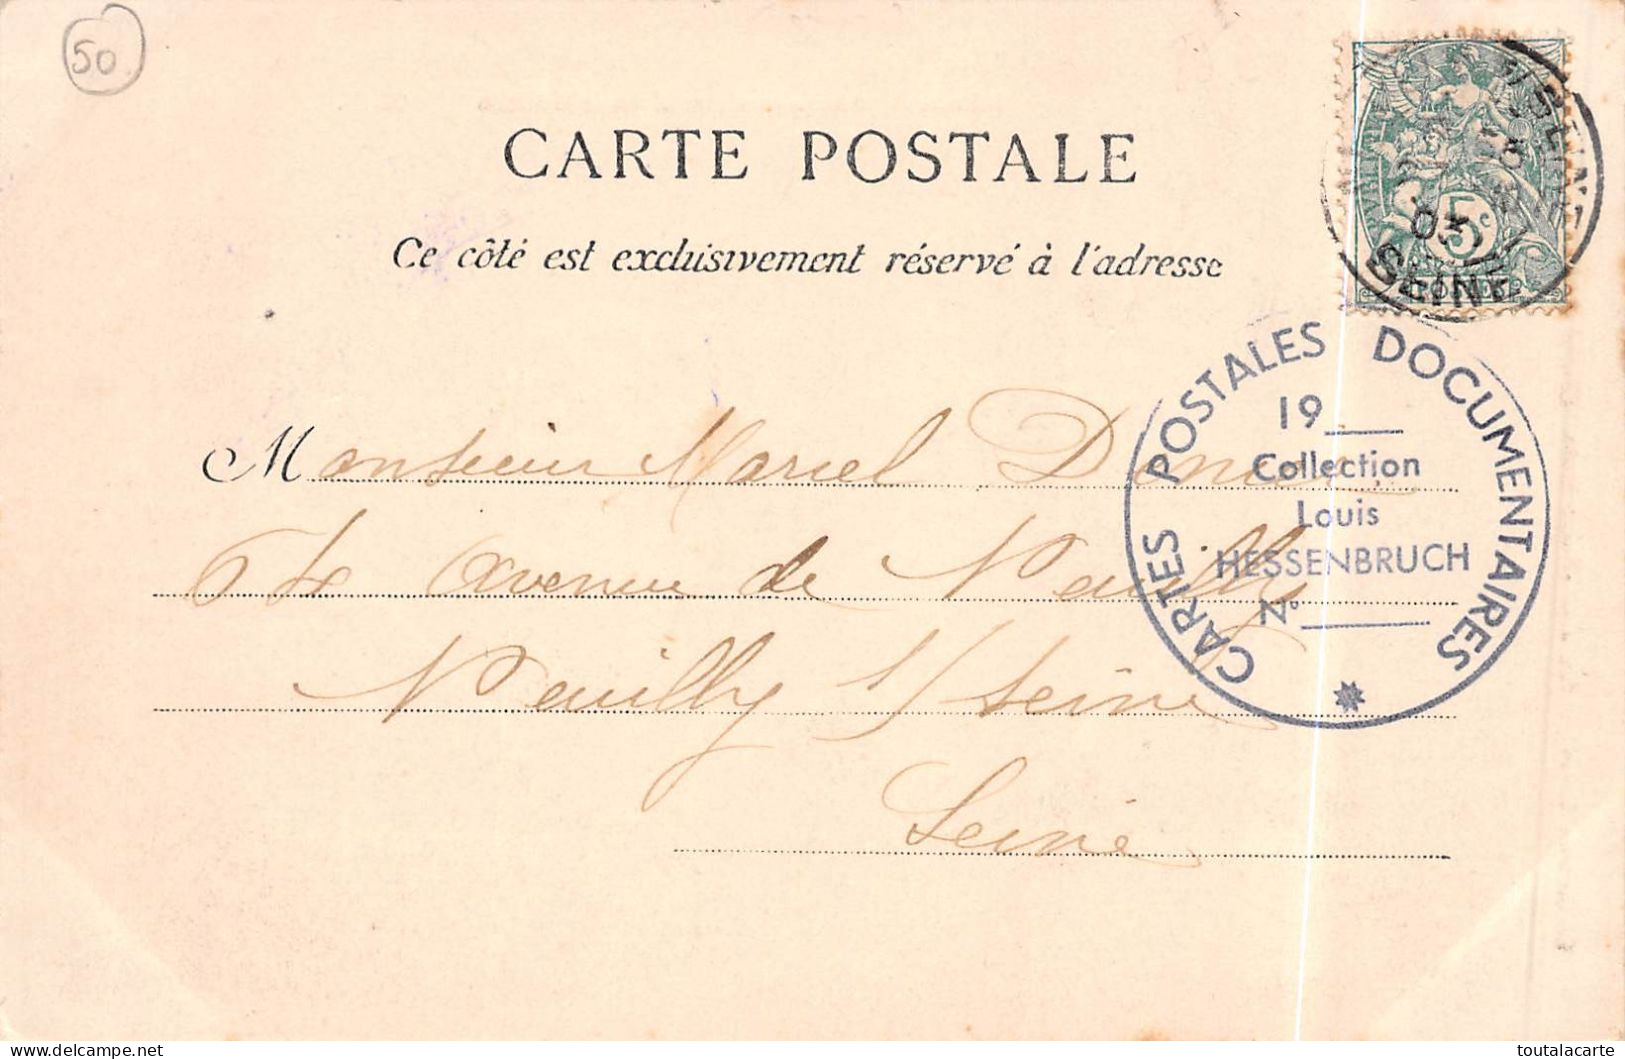 50
CARTE POSTALE
Ce côté est exclusivement réservé à l'adresse
5c
03
SEINE
POSTES
CARTES POSTALES DOCUMENTAIRES
19
Collection
Louis
HESSENBRUCH
N°
Monsieur Marcel
64 Avenue de Neuilly
Neuilly s/ Seine
Seine
delcampe.net
toutalacarte